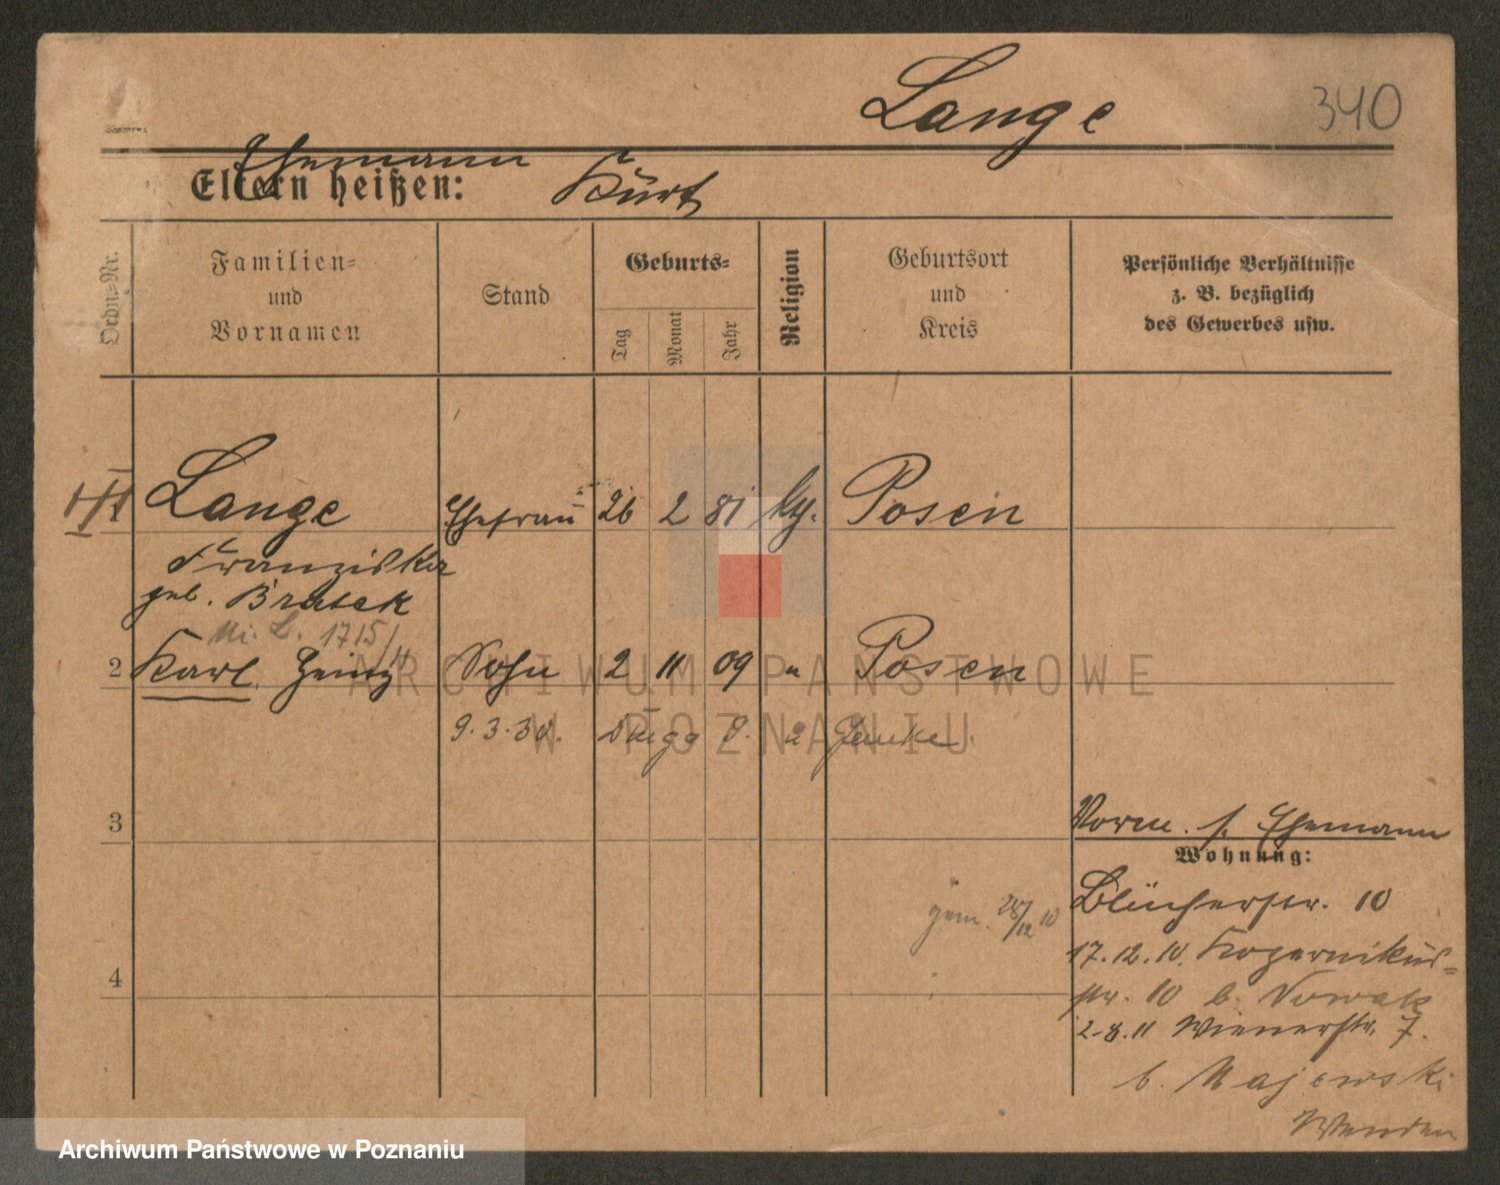 Lange
340
Ehemann
Eltern heißen: Kurt
Ordn.-Nr.
Familien-
und
Vornamen
Stand
Geburts-
Tag
Monat
Jahr
Religion
Geburtsort
und
Kreis
Persönliche Verhältnisse
z. B. bezüglich
des Gewerbes usw.
1 Lange Ehefrau 26 2 81 Posen
Franziska
geb. Bratek
1715/
2 Karl Heinz Sohn 2 11 09 " Posen
9.3.30.
3
Vorm. s. Ehemann
Wohnung:
Blücherstr. 10
gem. 28/12 10
17.12.10. Kopernikus=
4
str. 10 b. Nowak
2.8.11 Wienerstr. 7.
b. Majewski
Wenden
ARCHIWUM PAŃSTWOWE
W POZNANIU
Archiwum Państwowe w Poznaniu